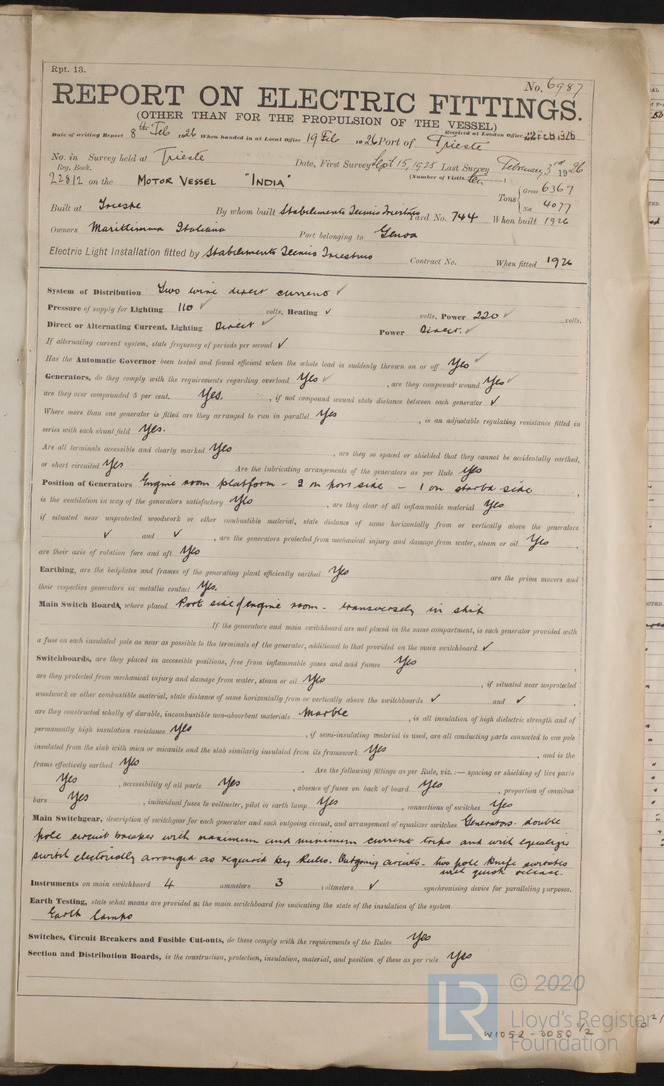 Rpt. 13.
No. 6987
REPORT ON ELECTRIC FITTINGS.
(OTHER THAN FOR THE PROPULSION OF THE VESSEL)
Date of writing Report 8th Feb 1926 When handed in at Local Office 19 Feb 1926 Port of Trieste Received at London Office FEB 1926
No. in Survey held at Trieste Date, First Survey Sept 15, 1925 Last Survey February 3rd 1926
Reg. Book. (Number of Visits )
22812 on the MOTOR VESSEL "INDIA" Tons { Gross 6367
Net 4077
Built at Trieste By whom built Stabilimento Tecnico Triestino Yard No. 744 When built 1926
Owners Marittima Italiana Port belonging to Genoa
Electric Light Installation fitted by Stabilimento Tecnico Triestino Contract No. When fitted 1926
System of Distribution Two wire direct current ✓
Pressure of supply for Lighting 110 ✓ volts, Heating ✓ volts, Power 220 ✓ volts.
Direct or Alternating Current, Lighting Direct ✓ Power Direct. ✓
If alternating current system, state frequency of periods per second ✓
Has the Automatic Governor been tested and found efficient when the whole load is suddenly thrown on or off Yes ✓
Generators, do they comply with the requirements regarding overload Yes ✓ , are they compound wound Yes ✓
are they over compounded 5 per cent. Yes. , if not compound wound state distance between each generator ✓
Where more than one generator is fitted are they arranged to run in parallel Yes , is an adjustable regulating resistance fitted in
series with each shunt field Yes.
Are all terminals accessible and clearly marked Yes , are they so spaced or shielded that they cannot be accidentally earthed,
or short circuited Yes Are the lubricating arrangements of the generators as per Rule Yes
Position of Generators Engine room platform - 2 on port side - 1 on starbd side
is the ventilation in way of the generators satisfactory Yes , are they clear of all inflammable material Yes
if situated near unprotected woodwork or other combustible material, state distance of same horizontally from or vertically above the generators
✓ and ✓ , are the generators protected from mechanical injury and damage from water, steam or oil Yes
are their axis of rotation fore and aft Yes
Earthing, are the bedplates and frames of the generating plant efficiently earthed Yes are the prime movers and
their respective generators in metallic contact Yes.
Main Switch Boards, where placed Port side of engine room - transversely in ship
If the generators and main switchboard are not placed in the same compartment, is each generator provided with
a fuse on each insulated pole as near as possible to the terminals of the generator, additional to that provided on the main switchboard ✓
Switchboards, are they placed in accessible positions, free from inflammable gases and acid fumes Yes
are they protected from mechanical injury and damage from water, steam or oil Yes , if situated near unprotected
woodwork or other combustible material, state distance of same horizontally from or vertically above the switchboards ✓ and ✓
are they constructed wholly of durable, incombustible non-absorbent materials Marble , is all insulation of high dielectric strength and of
permanently high insulation resistance Yes , if semi-insulating material is used, are all conducting parts connected to one pole
insulated from the slab with mica or micanite and the slab similarly insulated from its framework Yes , and is the
frame effectively earthed Yes . Are the following fittings as per Rule, viz.:— spacing or shielding of live parts
Yes , accessibility of all parts Yes , absence of fuses on back of board Yes , proportion of omnibus
bars Yes , individual fuses to voltmeter, pilot or earth lamp Yes , connections of switches Yes
Main Switchgear, description of switchgear for each generator and each outgoing circuit, and arrangement of equaliser switches Generators - double
pole circuit breaker with maximum and minimum current trips and with equaliser
switch electrically arranged as required by Rules. Outgoing circuits - two pole knife switches
with quick release.
Instruments on main switchboard 4 ammeters 3 voltmeters ✓ synchronising device for paralleling purposes.
Earth Testing, state what means are provided at the main switchboard for indicating the state of the insulation of the system
Earth lamps
Switches, Circuit Breakers and Fusible Cut-outs, do these comply with the requirements of the Rules Yes
Section and Distribution Boards, is the construction, protection, insulation, material, and position of these as per rule Yes
© 2020
LR
Lloyd's Register
Foundation
W1052-0080 1/2